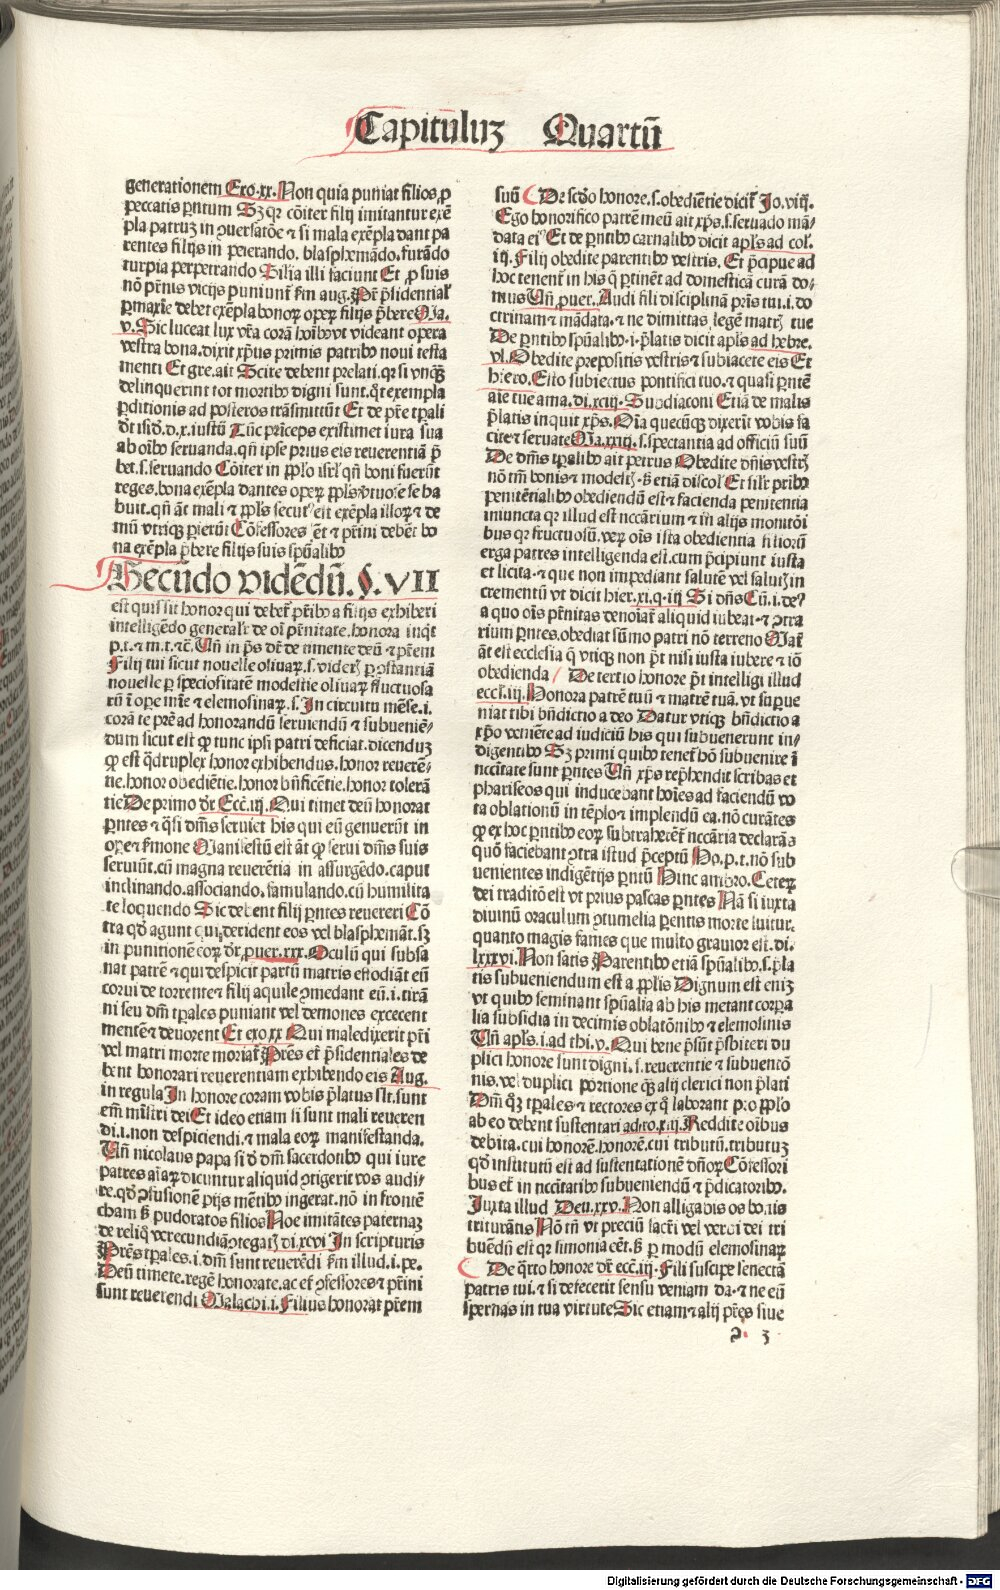 Capituluʒ Quartū
generationem Exo.xx. Non quia puniat filios, ꝓ
peccatis pntum Sʒ qr cōiter filij imitantur exē
pla patruʒ in ꝯuersatōe ⁊ si mala exēpla dant pa
rentes filijs in peierando, blasphemādo, furādo
turpia perpetrando Silia illi faciunt Et ꝓ suis
nō pr̄nis vicijs puniunt̄ ẜm aug. Pr̄ p̄sidential'
ꝑmaxie debet exēpla bonoꝝ opeꝝ filijs p̄bere Ma.
v. Sic luceat lux vr̄a corā hoībꝰ vt videant opera
vestra bona. dixit xp̄us primis patribꝰ noui testa
menti Et gre. ait Scire debent prelati. qr si vnqꝫ
delinquerint tot mortibꝰ digni sunt. q̄t exempla
ꝑditionis ad posteros trāsmittūt Et de pr̄e tp̄ali
dt isid. d. x. iustū Tūc princeps existimet iura sua
ab oībꝰ seruanda. qn̄ ipse prius eis reuerentiā p̄
bet. s. seruando Cōiter in ppl̄o isrl̄ qn̄ boni fuerūt
reges. bona exēpla dantes opeꝝ ppl̄s vtuose se ha
buit. qn̄ āt mali ⁊ ppl̄s secut' est exēpla illoꝝ ⁊ de
mū vtriqꝫ ꝑierūt Cōfessores et̄ ⁊ pr̄ini debēt bo
na exēpla p̄bere filijs suis sp̄ualibꝰ
Secūdo vidēdū. §. VII
est quis sit honor qui debet̄ pr̄ibꝰ a filijs exhiberi
intelligēdo generalr̄ de oī pr̄nitate. honora inq̄t
p. t. ⁊ m. t. ⁊c̄. Vn̄ in ps dt̄ de timente deū ⁊ pr̄em
Filij tui sicut nouelle oliuaꝝ. s. viderʒ ꝑ ꝯstantiā
nouelle ꝑ speciositatē modestie oliuaꝝ fluctuosa
rū ī ope mīe ⁊ elemosinaꝝ. s. In circuitu mēse. i.
corā te pr̄e ad honorandū seruiendū ⁊ subueniē-
dum sicut est qꝫ tunc ipsi patri deficiat. dicenduʒ
qꝫ est q̄druplex honor exhibendus. honor reuerē-
tie. honor obediētie. honor bn̄ficētie. honor tolerā
tie De primo dt̄ Ecc̄. iij. Qui timet deū honorat
pntes ⁊ q̄si dm̄is seruiet his qui eū genuerūt in
ope ⁊ ẜmone Manifestū est āt qꝫ serui dm̄is suis
seruiūt. cū magna reuerētia in assurgēdo. caput
inclinando. associando. famulando. cū humilita
te loquendo Sic debent filij pntes reuereri Cō
tra qd̄ agunt qui derident eos vel blasphemāt. sʒ
in punitionē eoꝝ dt̄. puer. xxx. Oculū qui subsa
nat patrē ⁊ qui despicit partū matris effodiāt eū
corui de torrente ⁊ filij aquile ꝯmedant eū. i. tirā
ni seu dm̄ tp̄ales puniant vel demones excecent
mentē ⁊ deuorent Et exo xx Qui maledixerit pr̄i
vel matri morte moriat̄ Pr̄es et̄ p̄sidentiales de
bent honorari reuerentiam exhibendo eis Aug.
in regula In honore coram vobis p̄latus sit. sunt
em̄ m̄istri dei Et ideo etiam si sunt mali reueren
di. i. non despiciendi. ⁊ mala eoꝝ manifestanda.
Vn̄ nicolaus papa si dd̄ dm̄ sacerdotibꝰ qui iure
patres aīaꝝ dicuntur aliquid ꝯtigerit vos audi-
re. qd̄ ꝯfusionē pr̄ijs mētibꝰ ingerat. nō in frontē
cham ẜ pudoratos filios Noe imitātes paternaʒ
de reliq̄ verecundiā ꝯtegatʒ di. xcvi In scripturis
Pr̄es tp̄ales. i. dm̄ sunt reuerēdi ẜm illud. i. pe.
Deū timete. regē honorate. ac et̄ ꝯfessores ⁊ pr̄ini
sunt reuerendi Malachi. i. Filius honorat pr̄em
suū De scd̄o honore. s. obediētie dicit̄ Jo. viij.
Ego honorifico patrē meū ait xp̄s. s. seruādo mā-
data ei' Et de pntibꝰ carnalibꝰ dicit apl̄s ad col'.
iij. Filij obedite parentibꝰ vestris. Et p̄cipue ad
hoc tenent̄ in his q̄ ꝑtinēt ad domesticā curā do-
mus Vn̄. puer. Audi fili disciplinā pr̄is tui. i. do
ctrinam ⁊ mādata. ⁊ ne dimittas legē matrʒ tue
De pntibꝰ sp̄ualibꝰ. i. p̄latis dicit apl̄s ad hebre.
vl. Obedite prepositis vestris ⁊ subiacete eis Et
hiero. Esto subiectus pontifici tuo. ⁊ quasi pntē
aīe tue ama. di. xciij. Subdiaconi Etiā de malis
p̄latis inquit xp̄s. Oīa quecūqꝫ dixerīt vobis fa
cite ⁊ seruate Ma. xxiij. s. spectantia ad officiū suū
De dm̄s tp̄alibꝰ ait petrus Obedite dn̄is vestrʒ
nō tm̄ bonis ⁊ modestʒ. ẜ etiā discol' Et silr̄ pribꝰ
penitētialibꝰ obediendū est ⁊ facienda penitentia
iniuncta qr illud est nccāriuʒ ⁊ in alijs monitōi
bus qr fructuosū. veꝝ oīs ista obedientia filiorū
erga patres intelligenda est. cum p̄cipiunt iusta
et licita. ⁊ que non impediant salutē vel saluʒ in
crementū vt dicit hier. xi. q. iij Si dn̄s Cū. i. de'
a quo oīs pr̄nitas denoīat̄ aliquid iubeat. ⁊ ꝯtra
rium pntes. obediat sūmo patri nō terreno Mat̄
āt est ecclesia q̄ vtiqꝫ non pt̄ nisi iusta iubere ⁊ iō
obedienda De tertio honore pt̄ intelligi illud
eccl. iij. Honora patrē tuū ⁊ matrē tuā. vt supue
niat tibi bn̄dictio a deo Datur vtiqꝫ bn̄dictio a
xp̄o veniēte ad iudiciū his qui subuenerunt in-
digentibꝰ Sʒ primi quibꝰ tenet̄ hō subuenire ī
nccītate sunt pntes Vn̄ xp̄s rephendit scribas et
phariseos qui inducebant hoīes ad faciendū vo
ta oblationū in tēplo ⁊ implendū ea. nō curātes
qꝫ ex hoc pntibꝰ eoꝝ subtraheret̄ nccāria declarās
quō faciebant ꝯtra istud p̄ceptū Ho. p. t. nō sub
uenientes indigētijs pntū Hinc ambro. Ceteꝝ
dei traditō est vt prius pascas pntes Nā si iuxta
diuinū oraculum ꝯtumelia pentis morte luitur.
quanto magis fames que multo grauior est. di.
lxxxvi. Non satis Parentibꝰ etiā sp̄ualibꝰ. s. p̄la
tis subueniendum est a ppl̄is Dignum est eniʒ
vt quibꝰ seminant sp̄ualia ab his metant corpa
lia subsidia in decimis oblatōnibꝰ ⁊ elemosinis
Vn̄ apl̄s. i. ad thi. v. Qui bene p̄sūt p̄sbiteri du
plici honore sunt digni. s. reuerentie ⁊ subuentō
nis. vel duplici portione qꝫ alij clerici non p̄lati
Dm̄ qꝫ tp̄ales ⁊ rectores ex q̄ laborant pro ppl̄o
ab eo debent sustentari ad ro. xiij. Reddite oībus
debita. cui honorē. honorē. cui tributū. tributuʒ
qd̄ institutū est ad sustentationē dn̄oꝝ Cōfessori
bus et̄ in nccītatibꝰ subueniendū ⁊ p̄dicatoribꝰ.
Juxta illud Deu. xxv. Non alligabis os bouis
triturātis Nō tn̄ vt preciū sacri vel verbi dei tri
buēdū est qr simonia eēt. ẜ ꝑ modū elemosinaꝝ
De q̄rto honore dt̄ ecc̄. iij. Fili suscipe senectā
patris tui. ⁊ si defecerit sensu veniam da. ⁊ ne eū
spernas in tua virtute Sic etiam ⁊ alij pr̄es siue
Digitalisierung gefördert durch die Deutsche Forschungsgemeinschaft - DFG